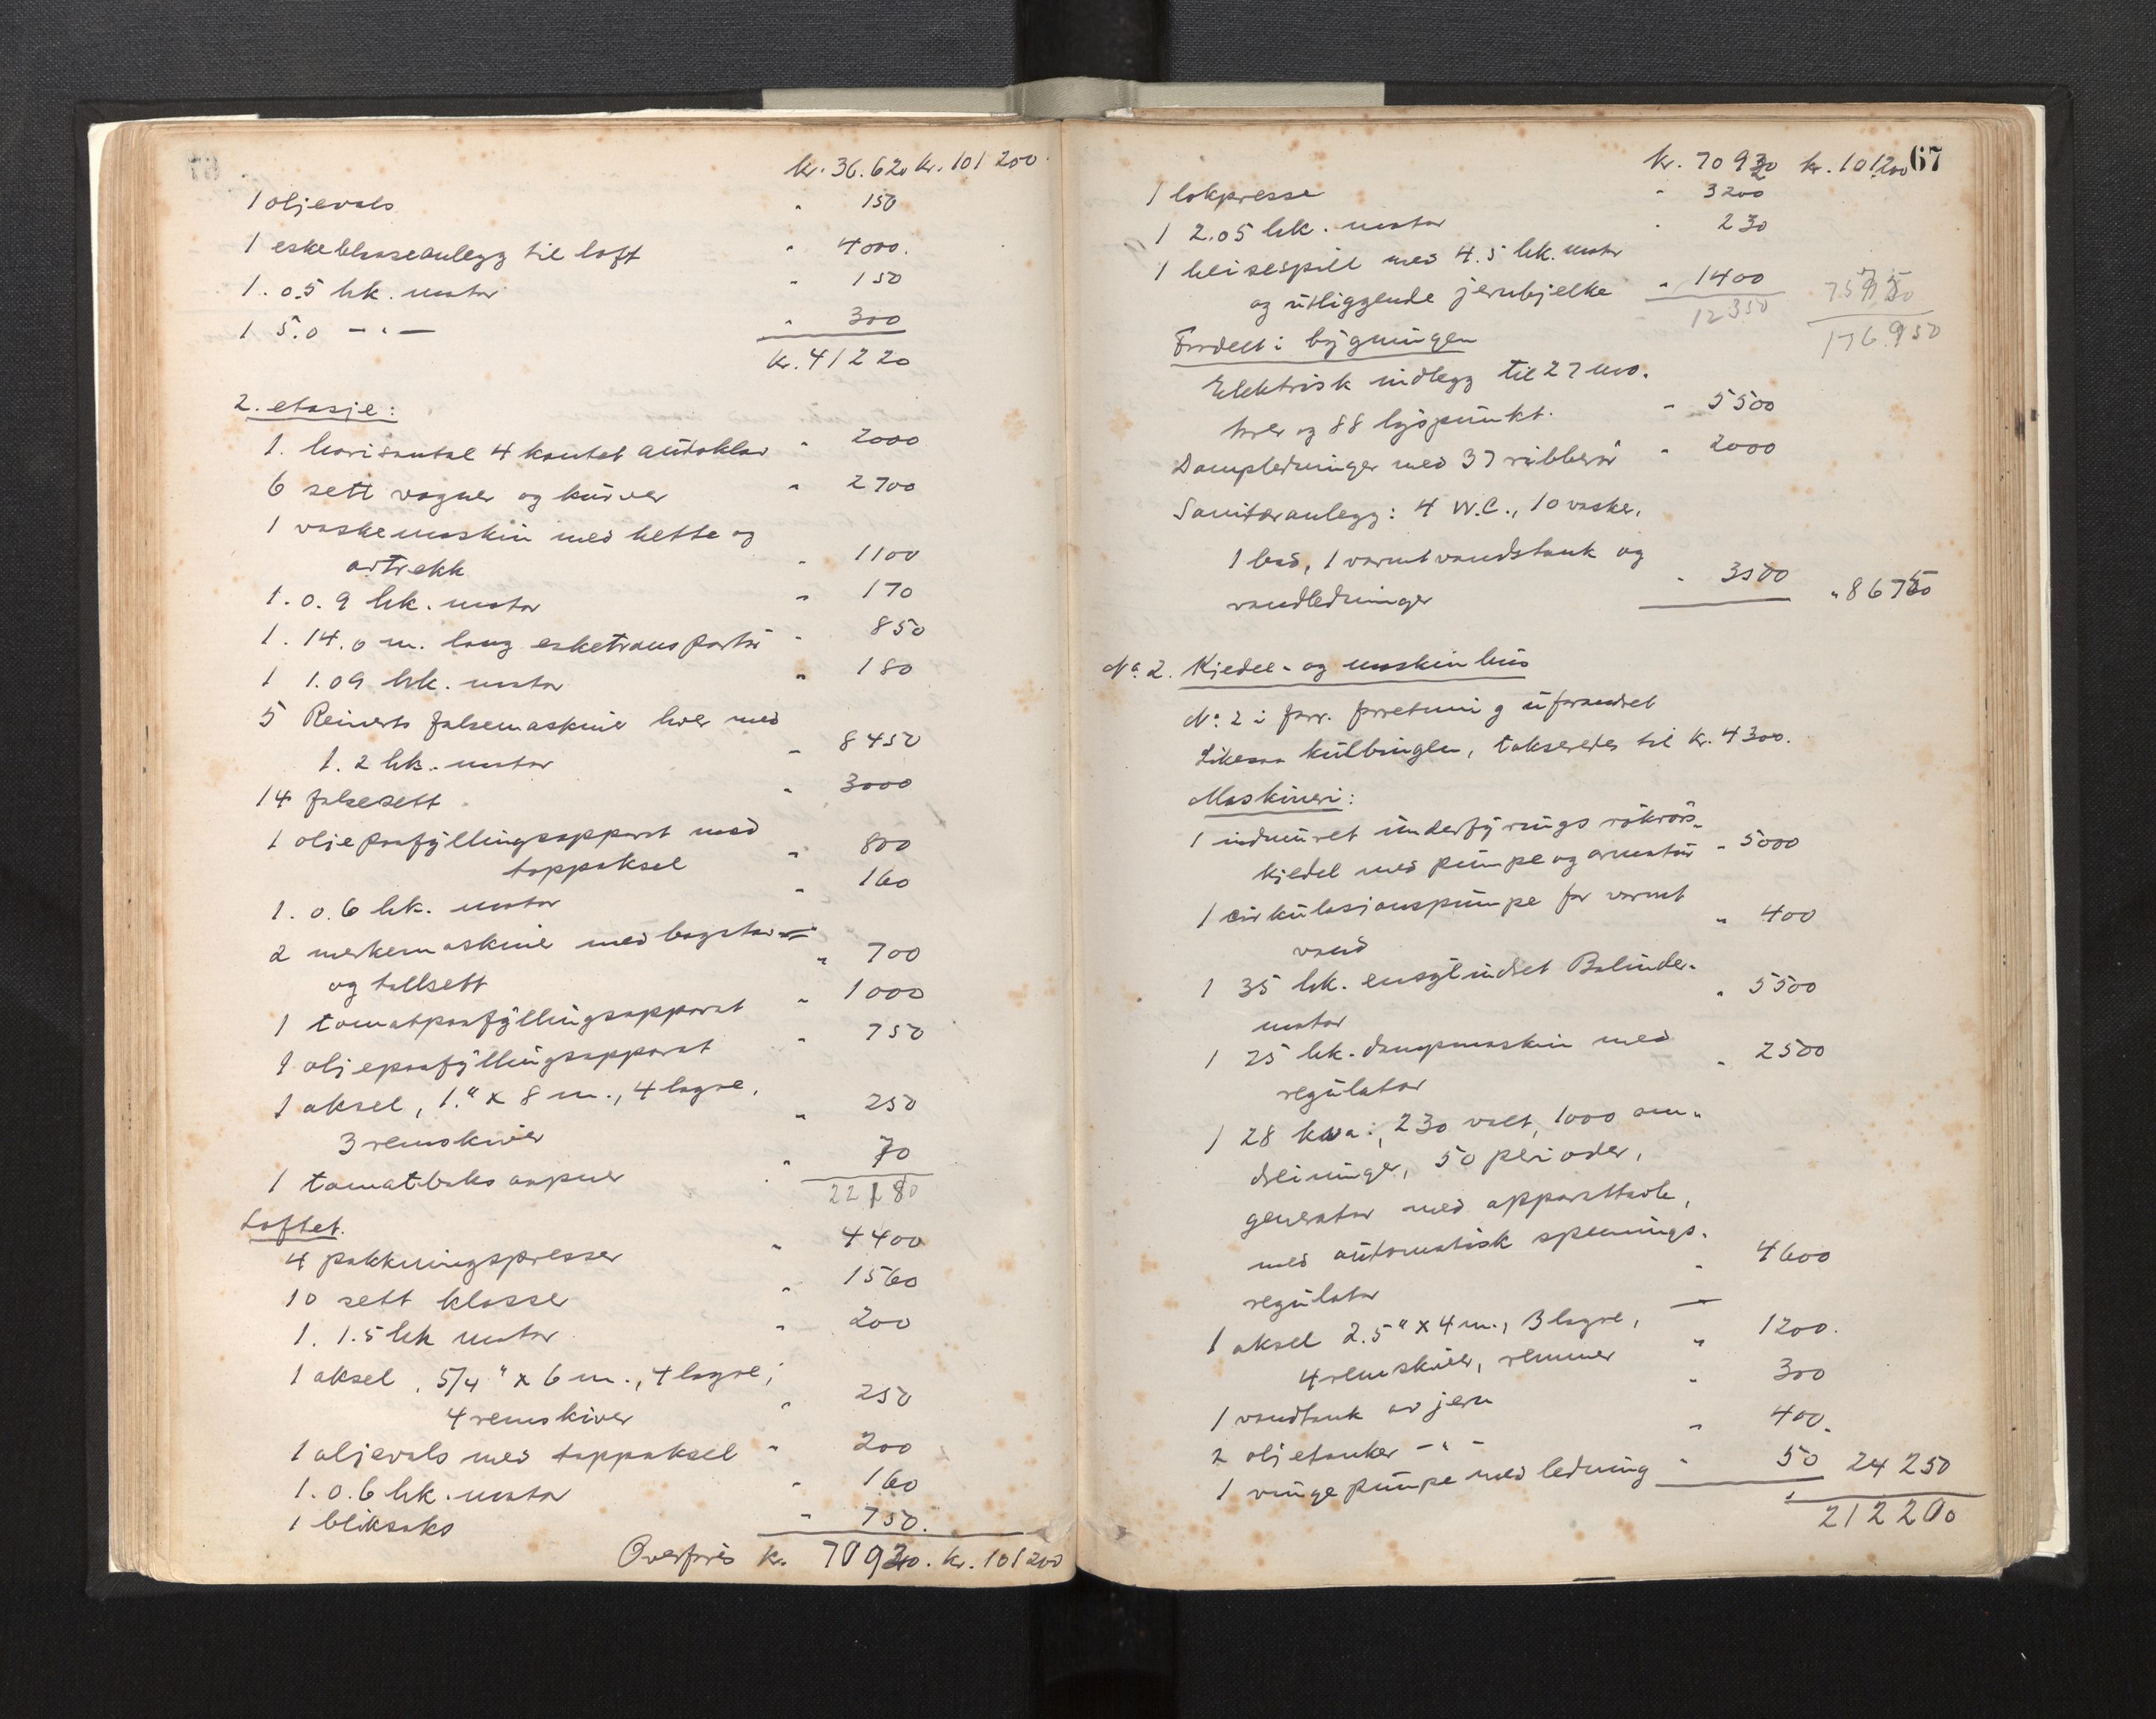 kr. 36.620 kr. 101 200
1 oljevals " 150
1 eskeblaaseanlegg til loft " 4000.
1. 0.5 hk. motor " 150
1 5.0 — " — " 300
kr. 41220
2. etasje:
1. horisontal 4 kantet autoklav " 2000
6 sett vogner og kurver " 2700
1 vaskemaskin med hette og
avtrekk " 1100
1. 0.9 hk. motor " 170
1. 14.0 m. lang esketransportør " 850
1 1.09 hk. motor " 180
5 Reinerts falsemaskiner hver med
1. 2 hk. motor " 8450
14 falsesett " 3000
1 oljepaafyllingsapparat med
tappaksel " 800
1. 0.6 hk. motor " 160
2 merkemaskiner med bogstav-
og tallsett " 700
1 tomatpaafyllingsapparat " 1000
1 oljepaafyllingsapparat " 750
1 aksel, 1." x 8 m., 4 lagre,
3 remskiver " 250
1 tomatboks aapner " 70
22180
Loftet.
4 pakkningspresser " 4400
10 sett klosser " 1560
1. 1.5 hk motor " 200
1 aksel, 5/4" x 6 m., 4 lagre,
4 remskiver " 250
1 oljevals med tappaksel " 200
1. 0.6 hk. motor " 160
1 bliksaks " 750.
Overføres kr. 70920. kr. 101200
67
kr. 70920 kr. 101200
1 lokpresse " 3200
1 2.05 hk. motor " 230
1 heisespill med 4.5 hk. motor
og utliggende jernbjelke " 1400
12350 75750
Fordelt i bygningen 176.950
Elektrisk indlegg til 27 mo-
torer og 88 lyspunkt. " 5500
Dampledninger med 37 ribberør " 2000
Sanitæranlegg: 4 W.C., 10 vasker,
1 bad, 1 varmtvandstank og
vandledninger " 3500 " 86750
No. 2. Kjedel- og maskinhus
No. 2 i forr. forretning uforandret
Likesaa kulbingen, takseredes til kr. 4300.
Maskineri:
1 indmuret underfyrings røkrørs-
kjedel med pumpe og armatur " 5000
1 cirkulasjonspumpe for varmt
vand " 400
1 35 hk. encylindret Bolinder-
motor " 5500
1 25 hk. dampmaskin med
regulator " 2500
1 28 kva:, 230 volt, 1000 om-
dreininger, 50 perioder,
generator med apparattavle,
med automatisk spennings-
regulator " 4600
1 aksel 2.5" x 4 m., 3 lagre,
4 remskiver, remmer " 1200.
1 vandtank av jern " 300
2 oljetanker — " — " 400.
1 vingepumpe med ledning " 50 24250
212200